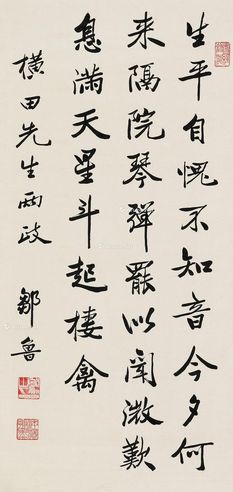 生平自愧不知音今夕何
来隔院琴弹罢似闻微歎
息满天星斗起楼禽
横田先生两政
邹鲁